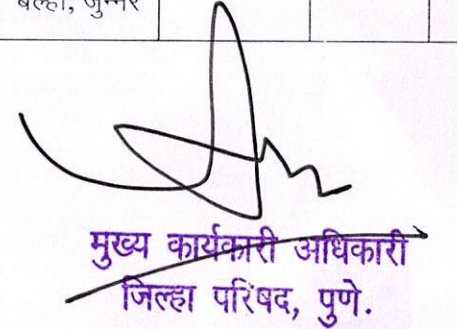 बेल्हा, जुन्नर
मुख्य कार्यकारी अधिकारी
जिल्हा परिषद, पुणे.